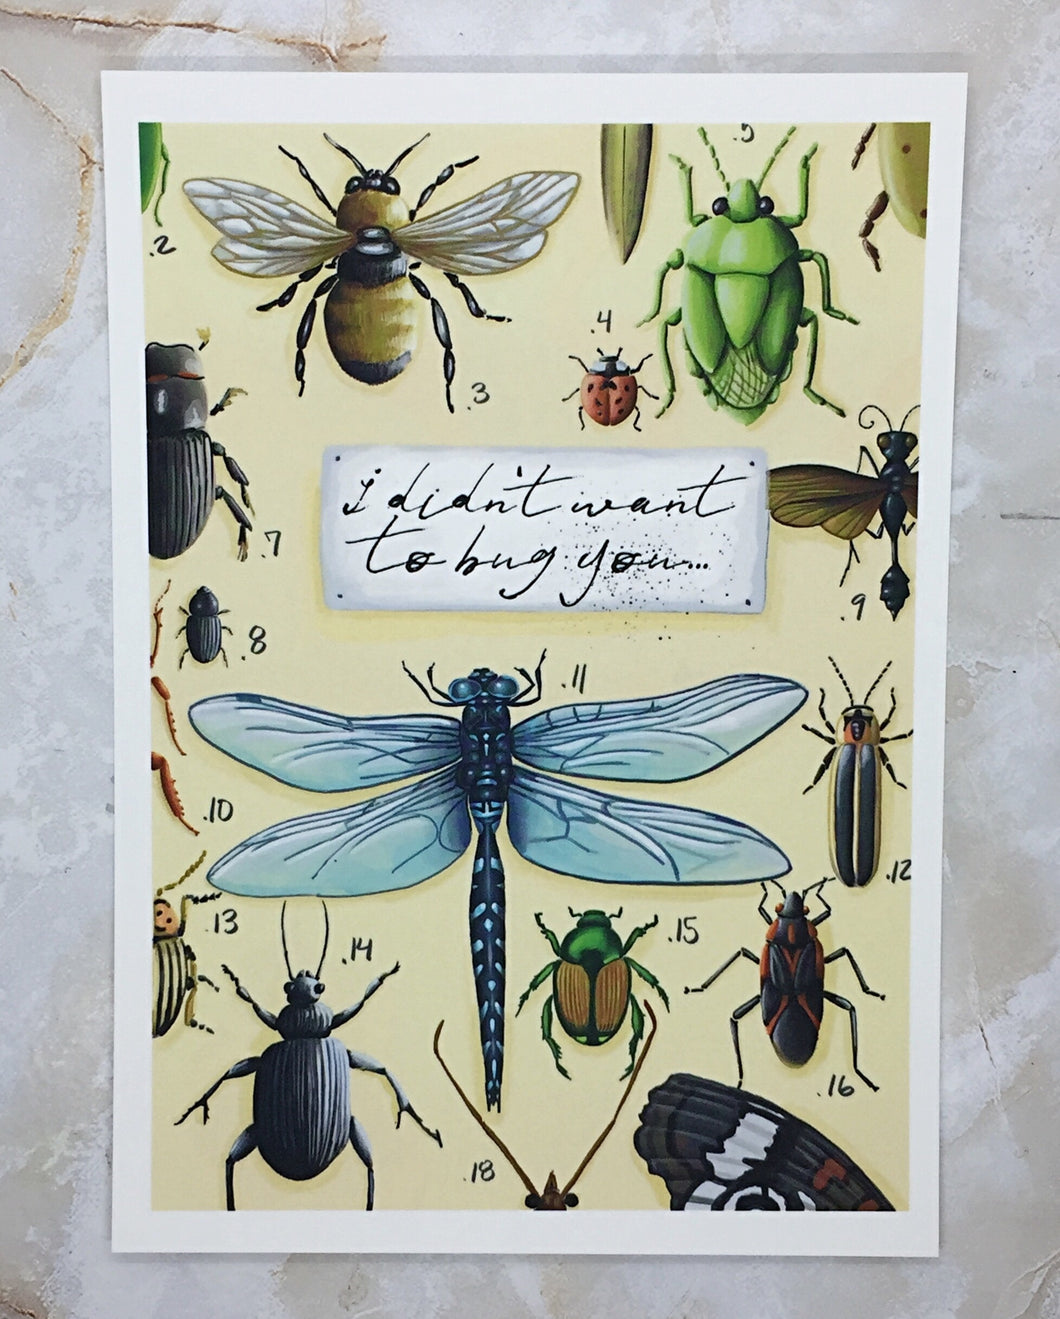 .2
.3
.4
.5
i didn't want
to bug you...
.7
.8
.9
.10
.11
.12
.13
.14
.15
.16
.18